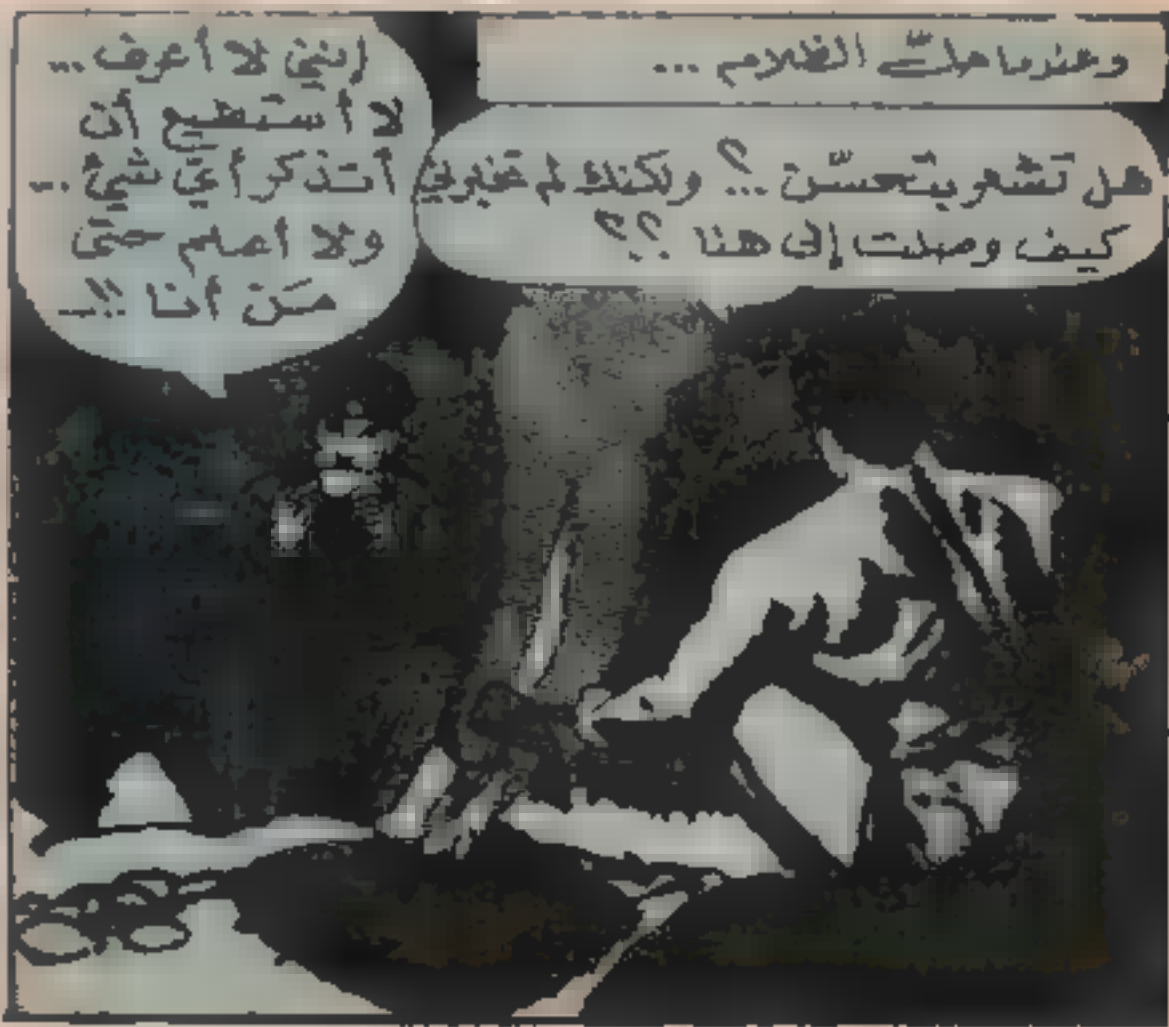 وعندما حلّ الظلام ...
هل تشعر بتحسّن ..؟ ولكنك لم تخبرني
كيف وصلت إلى هنا ؟؟
إنني لا أعرف ...
لا أستطيع أن
أتذكر أيّ شيئ ...
ولا أعلم حتى
مَن أنا !!..